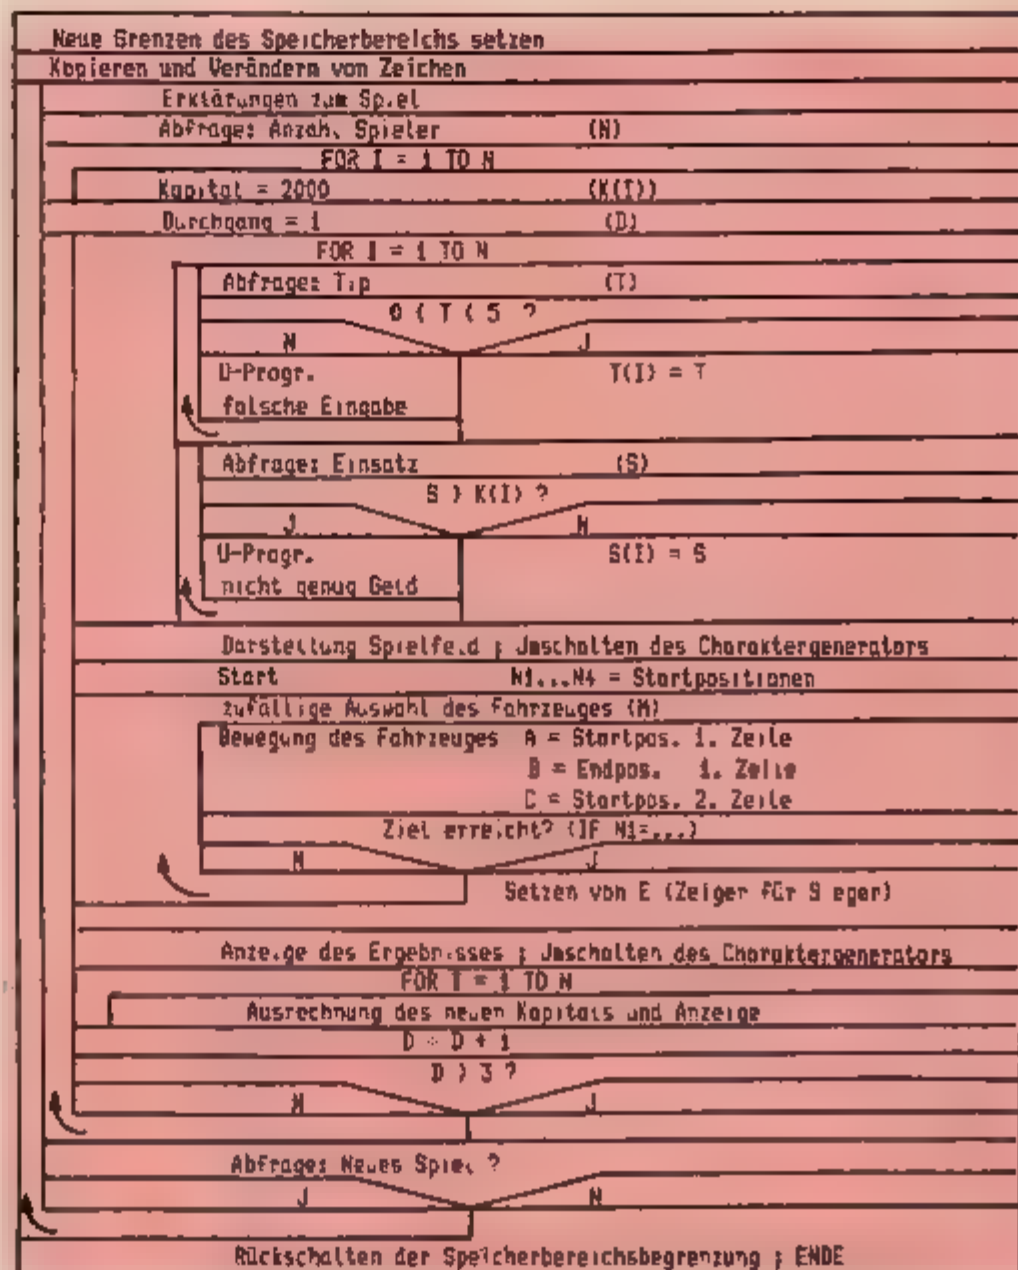 Neue Grenzen des Speicherbereichs setzen
Kopieren und Verändern von Zeichen
Erklärungen zum Spiel
Abfrage: Anzah. Spieler (N)
FOR I = 1 TO N
Kapital = 2000 (K(I))
Durchgang = 1 (D)
FOR I = 1 TO N
Abfrage: Tip (T)
0 < T < 5 ?
N J
U-Progr. T(I) = T
falsche Eingabe
Abfrage: Einsatz (S)
S > K(I) ?
J N
U-Progr. S(I) = S
nicht genug Geld
Darstellung Spielfeld ; Umschalten des Charaktergenerators
Start N1...N4 = Startpositionen
zufällige Auswahl des Fahrzeuges (M)
Bewegung des Fahrzeuges A = Startpos. 1. Zeile
B = Endpos. 1. Zeile
C = Startpos. 2. Zeile
Ziel erreicht? (IF N1=...)
N J
Setzen von E (Zeiger für Sieger)
Anzeige des Ergebnisses ; Umschalten des Charaktergenerators
FOR I = 1 TO N
Ausrechnung des neuen Kapitals und Anzeige
D = D + 1
D > 3 ?
N J
Abfrage: Neues Spiel ?
J N
Rückschalten der Speicherbereichsbegrenzung ; ENDE